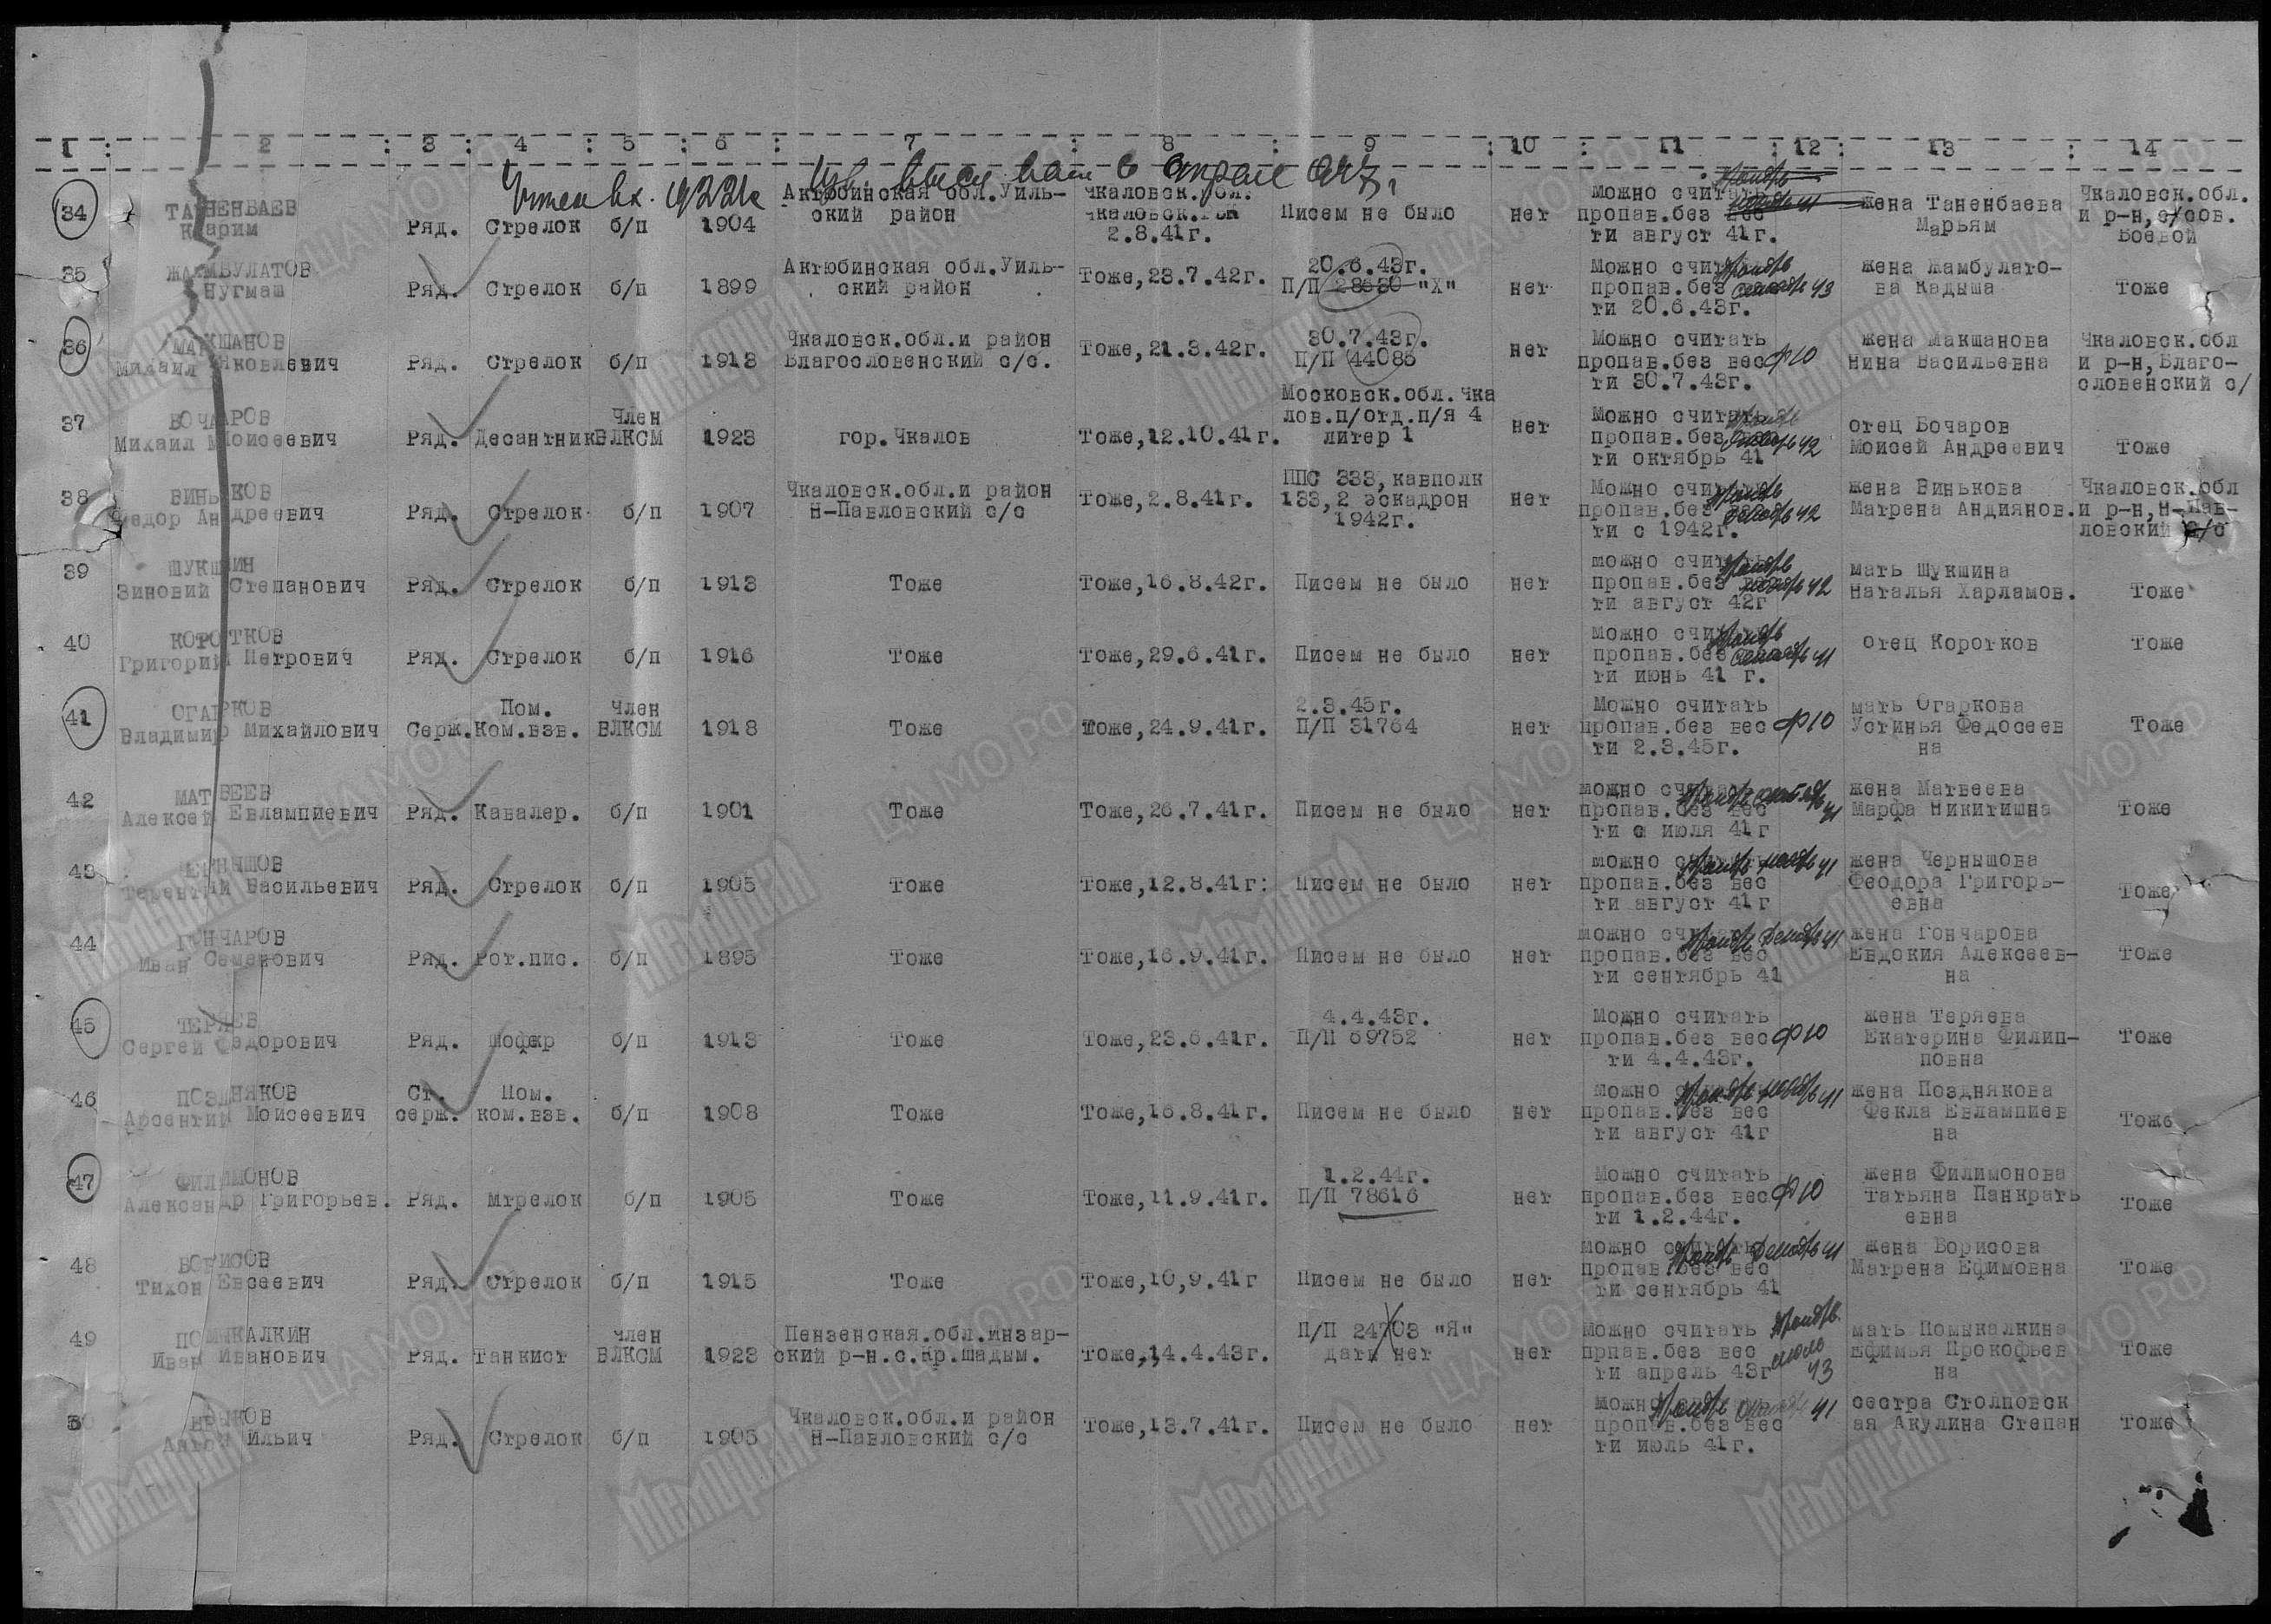 1 : 2 : 3 : 4 : 5 : 6 : 7 : 8 : 9 : 10 : 11 : 12 : 13 : 14
Учтен вх. 19221с
34 ТАНЕНБАЕВ Карим Ряд. Стрелок б/п 1904 Актюбинская обл.Уиль-ский район Чкаловск.обл. Чкаловск.ГВК 2.8.41г. Писем не было нет Можно считать пропав.без вести август 41г. жена Таненбаева Марьям Чкаловск.обл. и р-н,с/сов. Боевой
35 ЖАМБУЛАТОВ Нугмаш Ряд. Стрелок б/п 1899 Актюбинская обл.Уиль-ский район Тоже,23.7.42г. 20.6.43г. П/П 28630 "Х" нет Можно считать пропав.без вести 20.6.43г. жена Жамбулато-ва Кадыша Тоже
36 МАКШАНОВ Михаил Яковлевич Ряд. Стрелок б/п 1913 Чкаловск.обл.и район Благословенский с/с. Тоже,21.3.42г. 30.7.43г. П/П 44085 нет Можно считать пропав.без вести 30.7.43г. ф10 жена Макшанова Нина Васильевна Чкаловск.обл и р-н,Благо-словенский с/
37 БОЧАРОВ Михаил Моисеевич Ряд. Десантник Член ВЛКСМ 1923 гор.Чкалов Тоже,12.10.41г. Московск.обл.Чка лов.п/отд.п/я 4 литер 1 нет Можно считать пропав.без вести октябрь 41 отец Бочаров Моисей Андреевич Тоже
38 ВИНЬКОВ Федор Андреевич Ряд. Стрелок б/п 1907 Чкаловск.обл.и район Н-Павловский с/с Тоже,2.8.41г. ППС 333,кавполк 133,2 эскадрон 1942г. нет Можно считать пропав.без вести с 1942г. жена Винькова Матрена Андиянов. Чкаловск.обл и р-н,Н-Пав-ловский с/с
39 ШУКШИН Зиновий Степанович Ряд. Стрелок б/п 1913 Тоже Тоже,16.8.42г. Писем не было нет можно считать пропав.без вести август 42г мать Шукшина Наталья Харламов. Тоже
40 КОРОТКОВ Григорий Петрович Ряд. Стрелок б/п 1916 Тоже Тоже,29.6.41г. Писем не было нет можно считать пропав.без вести июнь 41 г. отец Коротков Тоже
41 ОГАРКОВ Владимир Михайлович Серж. Пом. Ком.взв. Член ВЛКСМ 1918 Тоже Тоже,24.9.41г. 2.3.45г. П/П 31764 нет Можно считать пропав.без вести 2.3.45г. ф10 мать Огаркова Устинья Федосеев на Тоже
42 МАТВЕЕВ Алексей Евлампиевич Ряд. Кавалер. б/п 1901 Тоже Тоже,26.7.41г. Писем не было нет можно считать пропав.без вести с июля 41г жена Матвеева Марфа Никитишна Тоже
43 ЧЕРНЫШОВ Терентий Васильевич Ряд. Стрелок б/п 1905 Тоже Тоже,12.8.41г: Писем не было нет можно считать пропав.без вести август 41г жена Чернышова Феодора Григорь-евна Тоже
44 ГОНЧАРОВ Иван Семенович Ряд. Рот.пис. б/п 1895 Тоже Тоже,16.9.41г. Писем не было нет можно считать пропав.без вести сентябрь 41 жена Гончарова Евдокия Алексеев-на Тоже
45 ТЕРЯЕВ Сергей Федорович Ряд. Шофер б/п 1913 Тоже Тоже,23.6.41г. 4.4.43г. П/П 69752 нет Можно считать пропав.без вести 4.4.43г. ф10 жена Теряева Екатерина Филип-повна Тоже
46 ПОЗДНЯКОВ Арсентий Моисеевич Ст. серж. Пом. ком.взв. б/п 1908 Тоже Тоже,16.8.41г. Писем не было нет можно считать пропав.без вести август 41г жена Позднякова Фекла Евлампиев на Тоже
47 ФИЛИМОНОВ Александр Григорьев. Ряд. Мтрелок б/п 1905 Тоже Тоже,11.9.41г. 1.2.44г. П/П 78616 нет Можно считать пропав.без вести 1.2.44г. ф10 жена Филимонова Татьяна Панкрать евна Тоже
48 БОРИСОВ Тихон Евсеевич Ряд. Стрелок б/п 1915 Тоже Тоже,10,9.41г Писем не было нет можно считать пропав.без вести сентябрь 41 жена Борисова Матрена Ефимовна Тоже
49 ПОМЫКАЛКИН Иван Иванович Ряд. Танкист Член ВЛКСМ 1923 Пензенская.обл.инзар-ский р-н.с.Кр.Шадым. Тоже,14.4.43г. П/П 24703 "Я" даты нет нет Можно считать прпав.без вести апрель 43г мать Помыкалкина Ефимья Прокофьев на Тоже
Ильич Ряд. Стрелок б/п 1905 Чкаловск.обл.и район Н-Павловский с/с Тоже,13.7.41г. Писем не было нет можно пропав.без вести июль 41г. сестра Столповск ая Акулина Степан Тоже
Мемориал
ЦАМО РФ